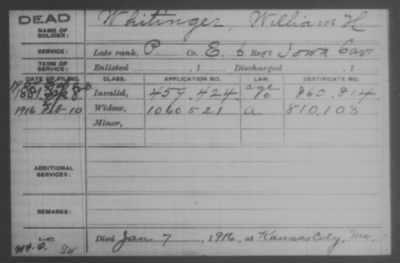 DEAD
NAME OF SOLDIER: Whitinger, William H.
SERVICE: Late rank, P. Co. E, 6 Reg't Iowa Cav
TERM OF SERVICE: Enlisted , 1 Discharged , 1
DATE OF FILING. CLASS. APPLICATION NO. LAW. CERTIFICATE NO.
Invalid, 457.424 age 860.814
1916 Feb 10 Widow, 1060521 a 810,103
Minor,
ADDITIONAL SERVICES:
REMARKS:
Died Jan 7, 1916, at Kansas City, Mo.